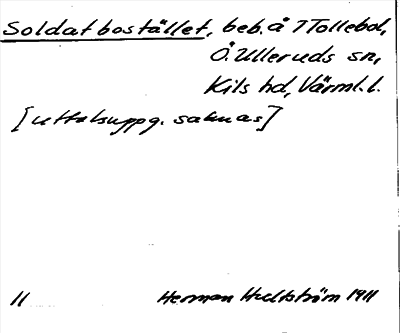 Soldatbostället, beb. å Tollebol,
Ö. Ulleruds sn,
Kils hd, Värml. l.
[uttalsuppg. saknas]
11 Herman Hultström 1911